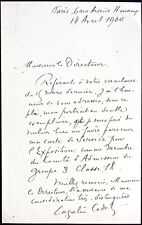 Paris, 6 rue Arsène Houssaye
14 Avril 1900
Monsieur le Directeur
Référant à votre circulaire
de mars dernier, j'ai l'hon-
neur de vous adresser, sous ce
pli, mon portrait en double
exemplaire,
vouloir bien me faire parvenir
ma carte de service pour
l'Exposition comme membre
du Comité d'Admission du
groupe 3 Classe 18
Veuillez recevoir, Monsieur
le Directeur, l'assurance de ma
considération très distinguée